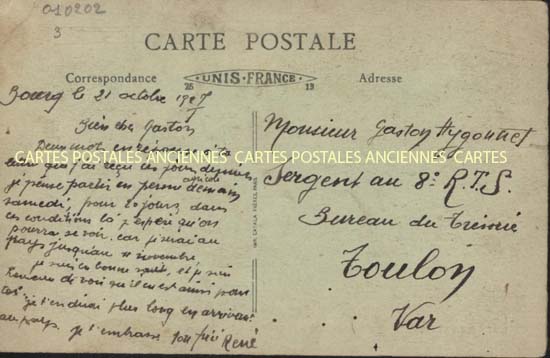 010202
3
CARTE POSTALE
Correspondance
UNIS-FRANCE
Adresse
Bourg le 21 octobre 1927
Bien cher Gaston
Deux mot en réponse à ta
que j'ai reçu ces jours derniers
CARTES POSTALES ANCIENNES CARTES POSTALES ANCIENNES CARTES POSTALES ANCIENNES
je pense partir en perm agricole demain
samedi, pour 20 jours dans
ces conditions là j'espère qu'on
pourra se voir. car j'serai au
pays jusqu'au 11 novembre
je suis en bonne santé et je suis
de voir qu'il en est ainsi pour
toi je t'en dirai plus long en arrivant
au pays. je t'embrasse ton frère René
Monsieur Gaston
Sergent au 8e R.T.S.
Bureau du Trésorié
Toulon
Var